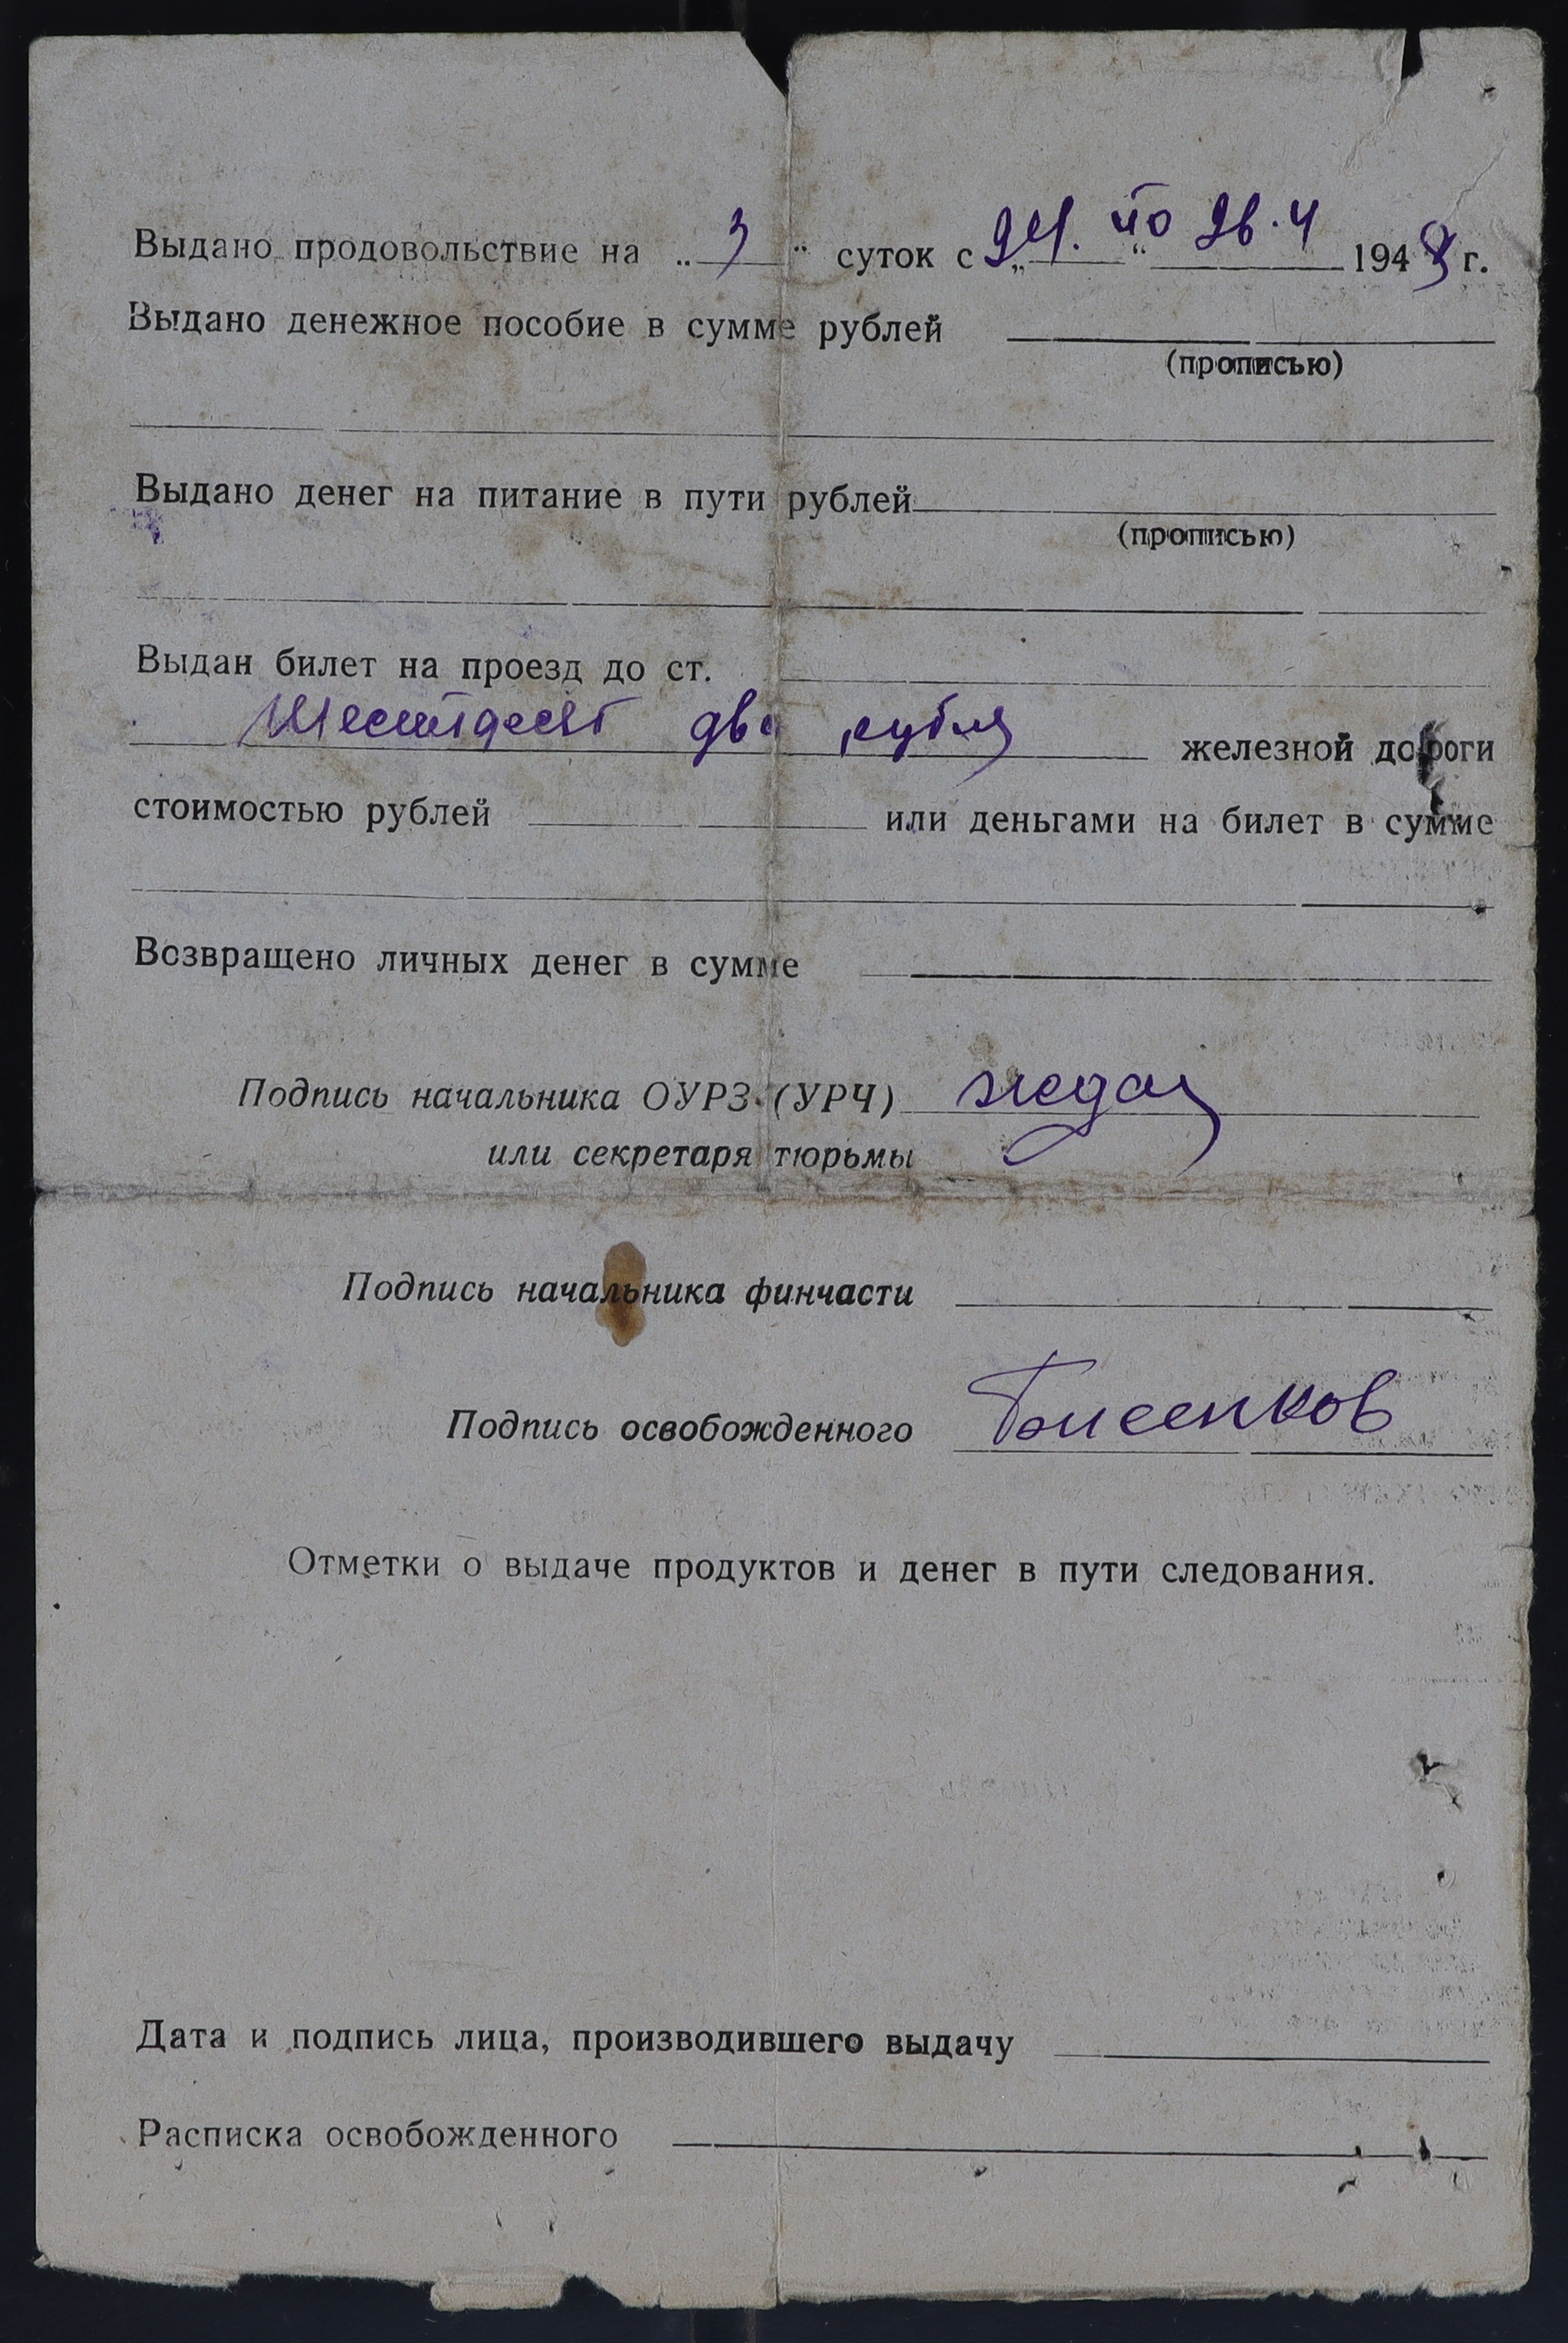 Выдано продовольствие на „3“ суток с „24.“ по 26.4 1948 г.
Выдано денежное пособие в сумме рублей
(прописью)
Выдано денег на питание в пути рублей
(прописью)
Выдан билет на проезд до ст.
Шестьдесят два рубля железной дороги
стоимостью рублей или деньгами на билет в сумме
Возвращено личных денег в сумме
Подпись начальника ОУРЗ (УРЧ)
или секретаря тюрьмы
Подпись начальника финчасти
Подпись освобожденного
Отметки о выдаче продуктов и денег в пути следования.
Дата и подпись лица, производившего выдачу
Расписка освобожденного